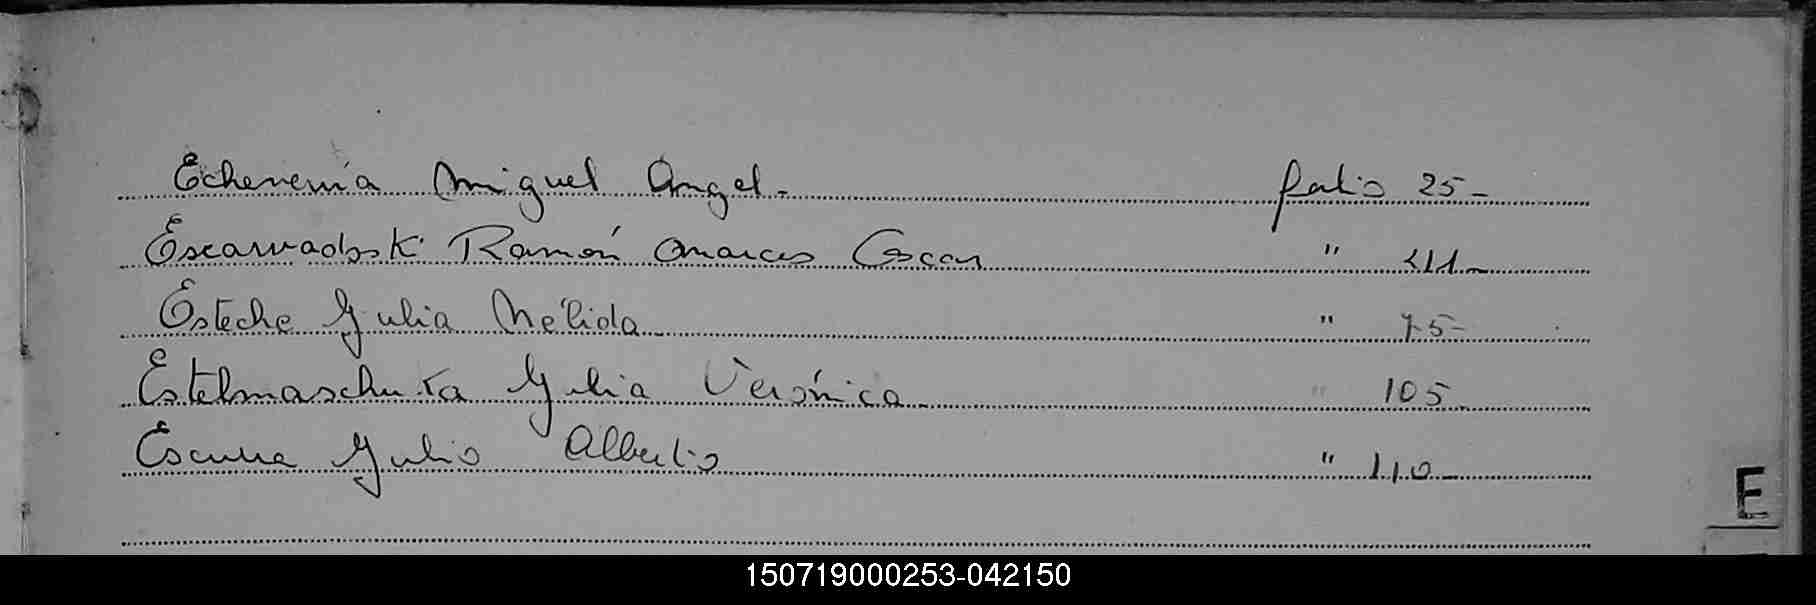 Echeverría Miguel Angel. folio 25-
Ramón Marcos Oscar "
Esteche Julia Nélida " 75-
Estelmaschuka Julia Verónica " 105.
Escurra Julio Alberto " 110-
E
150719000253-042150